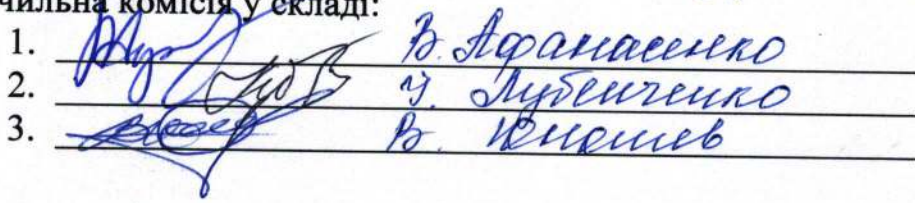 чильна комісія у складі:
1. В. Афанасенко
2. Лубенченко
3. В. Юношев